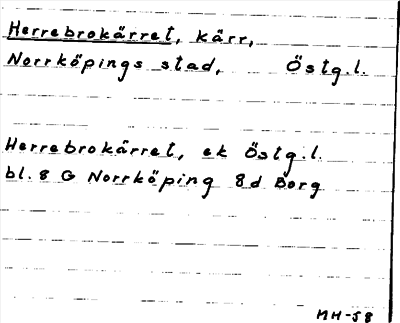 Herrebrokärret, kärr,
Norrköpings stad, Östg.l.
Herrebrokärret, ek Östg.l.
bl. 8 G Norrköping 8d Borg
MH-58